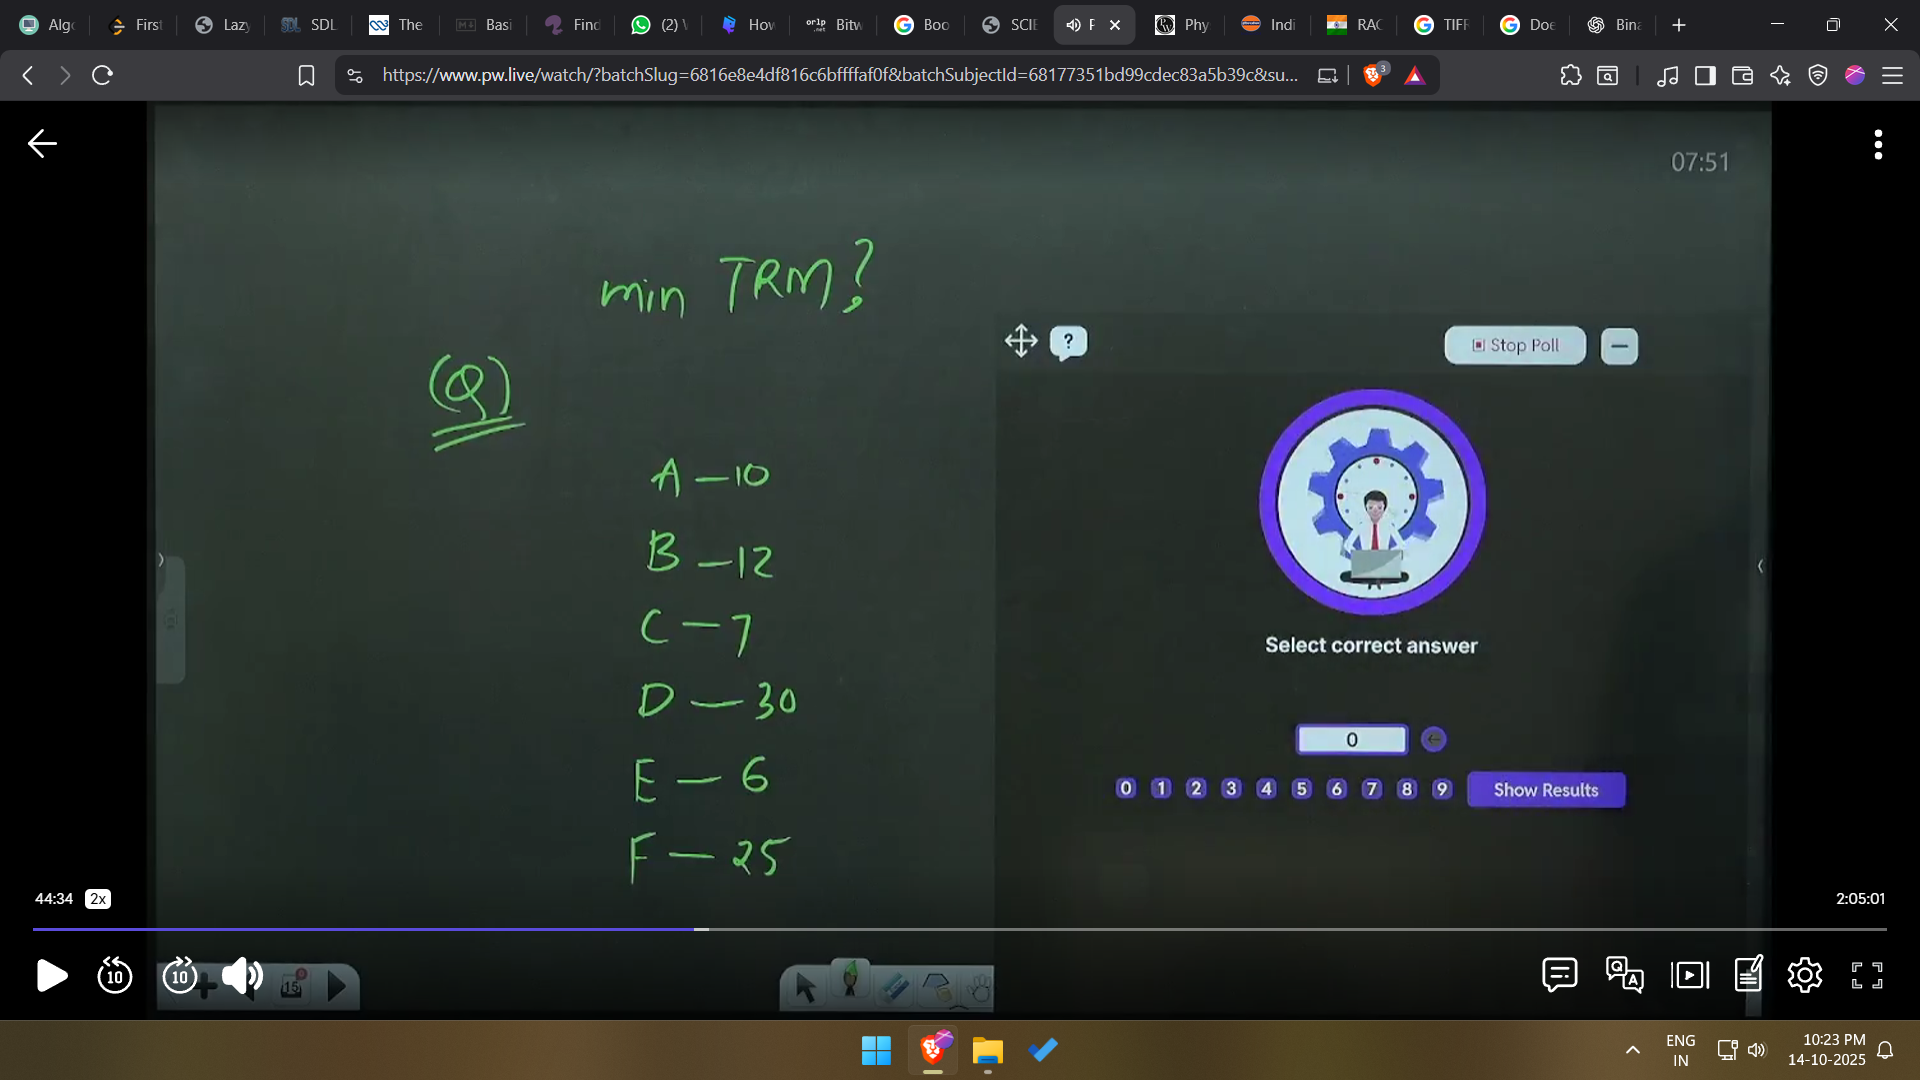 Algo
First
Lazy
SDL
The
Basi
Find
(2) W
How
Bitw
Boo
SCIE
P
Phy
Indi
RAC
TIFR
Doe
Bina
https://www.pw.live/watch/?batchSlug=6816e8e4df816c6bffffaf0f&batchSubjectId=68177351bd99cdec83a5b39c&su...
3
07:51
min TRM?
(Q)
? Stop Poll
A – 10
B – 12
C – 7
D – 30
E – 6
F – 25
Select correct answer
0
0 1 2 3 4 5 6 7 8 9 Show Results
44:34 2x
2:05:01
10 10
15
Q A
ENG
IN
10:23 PM
14-10-2025